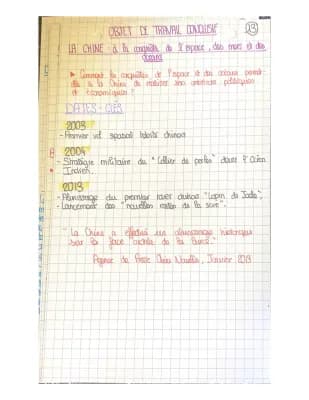 OBJET DE TRAVAIL CONCLUSIF
LA CHINE : à la conquête de l'espace, des mers et des
océans
Comment la conquête de l'espace et des océans permet-
elle à la Chine de ses ambitions politiques
et économiques ?
DATES-CLÉS
2003
- Premier vol spatial habité chinois
2004
- Stratégie militaire du "Collier de perles" dans l'Océan
Indien.
2013
- Alunissage du premier rover chinois "Lapin de Jade",
- Lancement des "nouvelles routes de la soie".
"La Chine a effectué un alunissage historique
sur la face cachée de la Lune."
Agence de Presse Chine Nouvelle, Janvier 2019